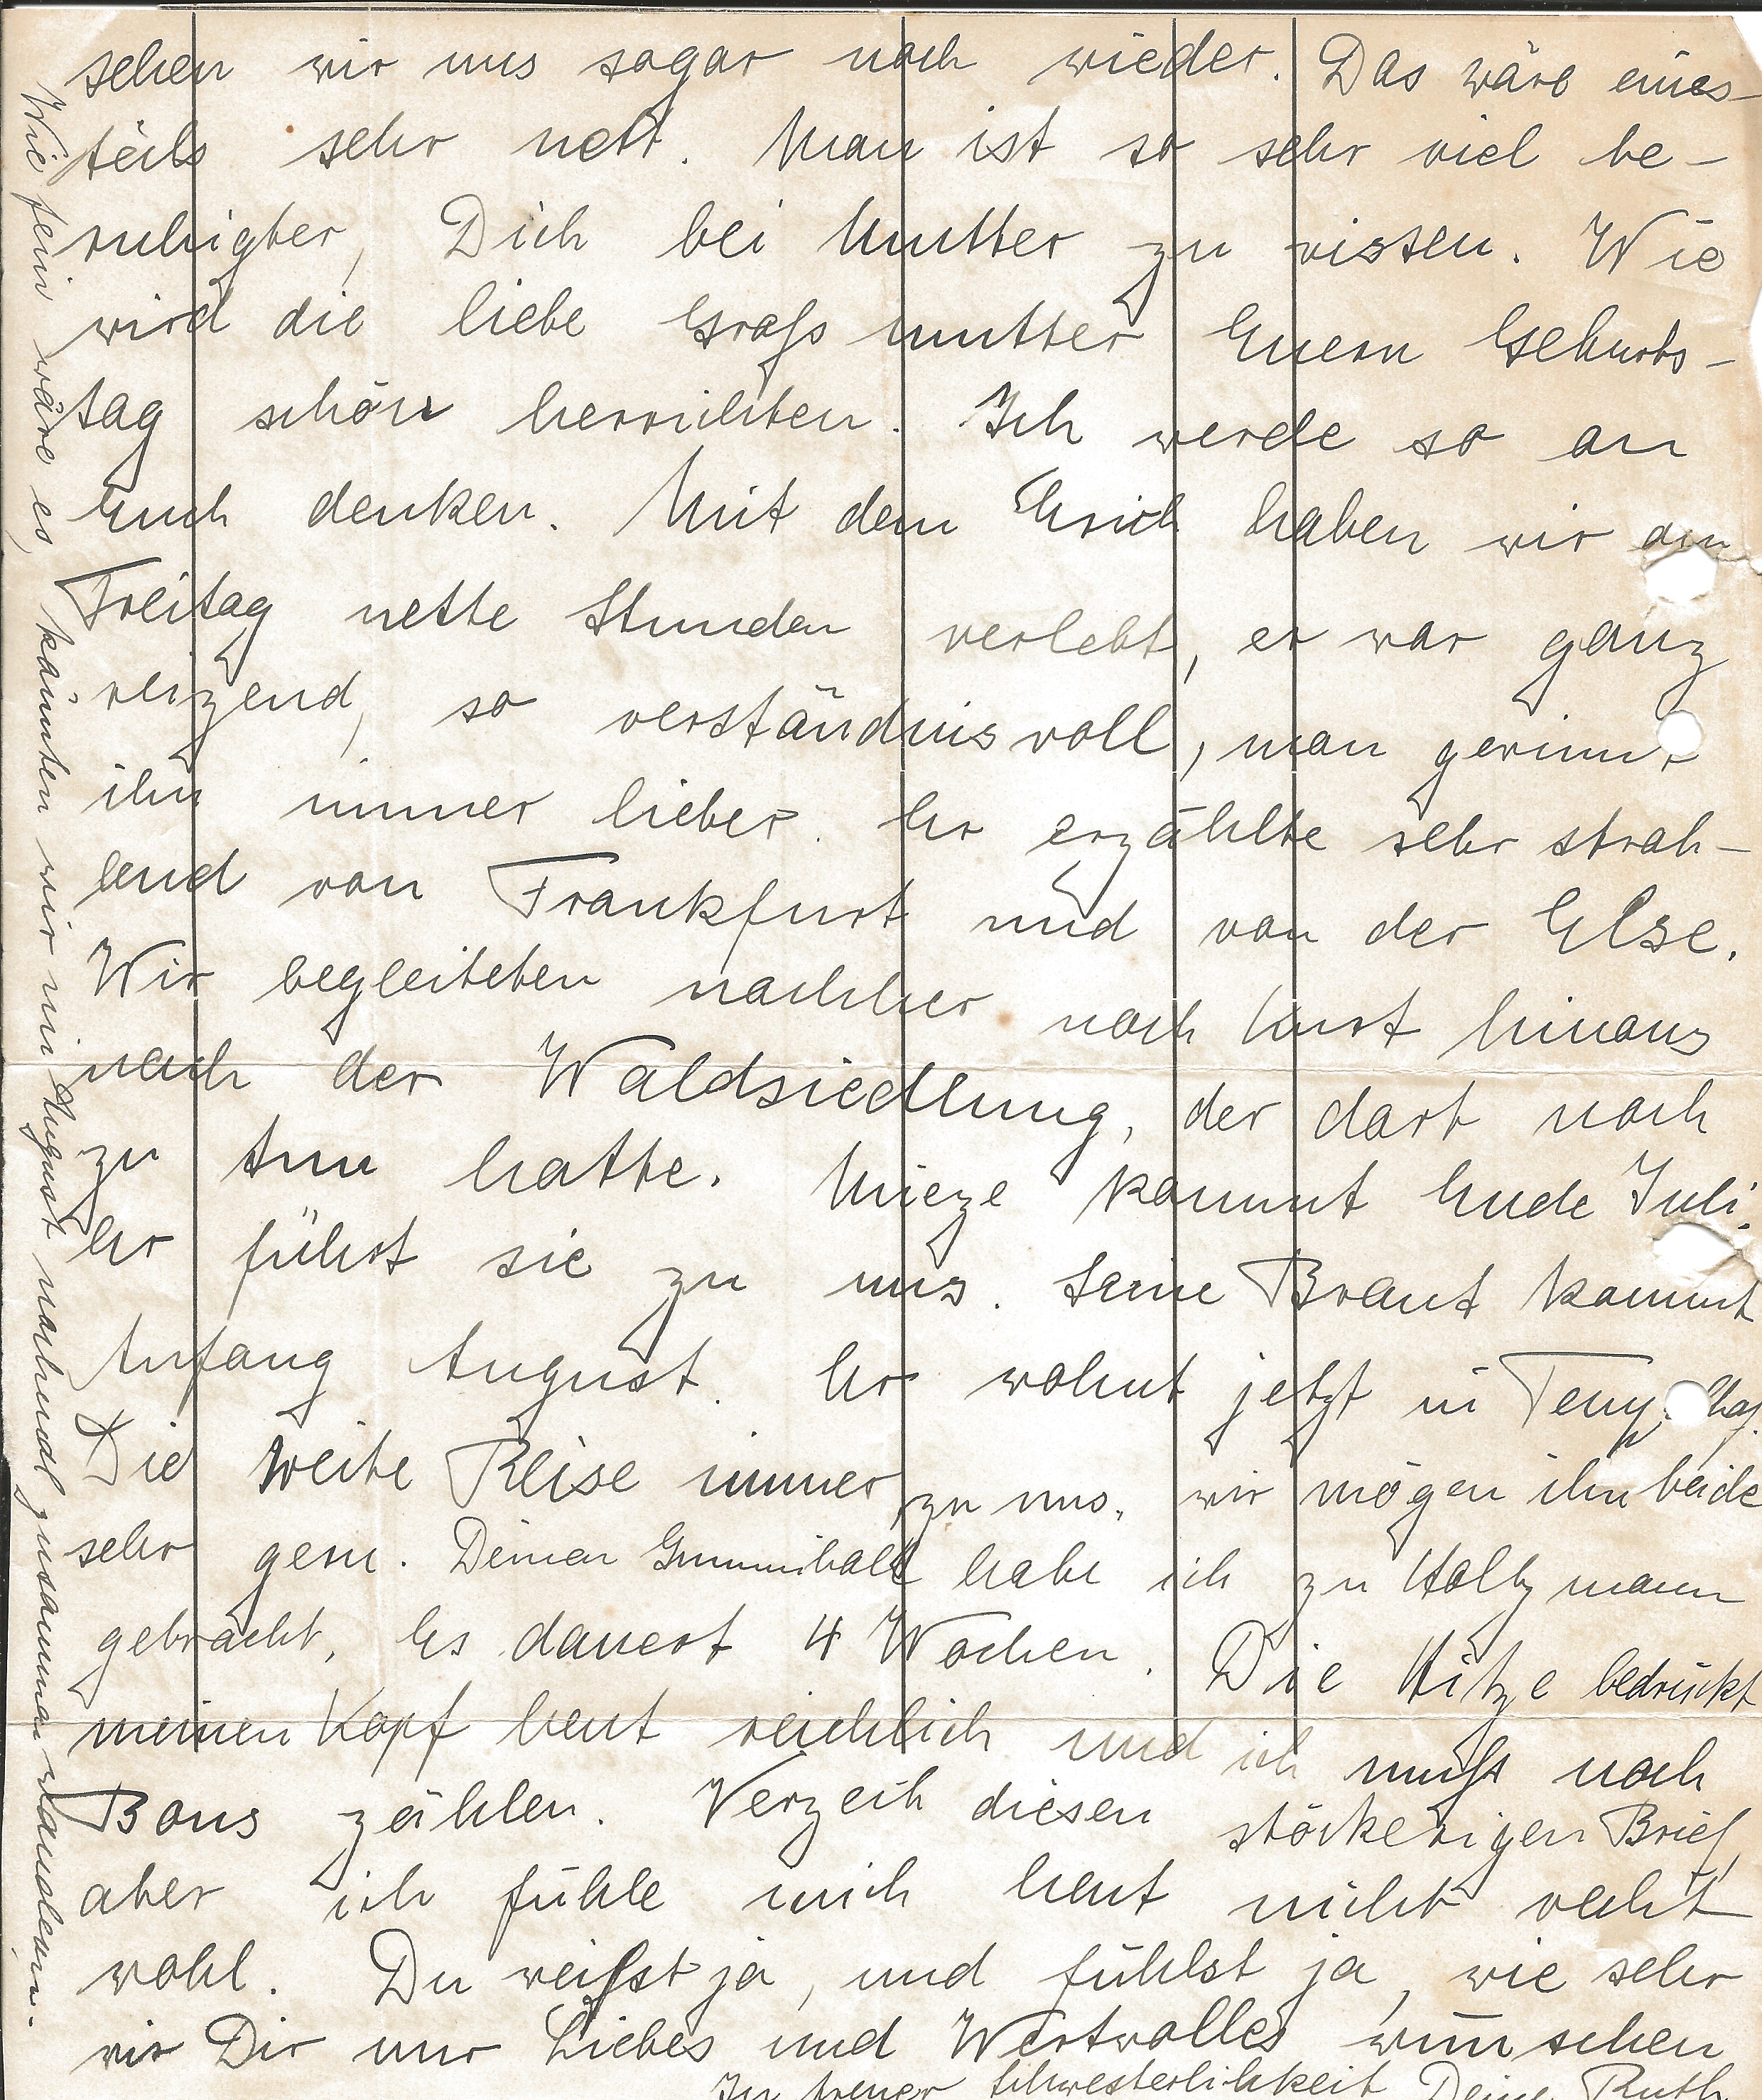 sehen wir uns sogar noch wieder. Das wäre eines-
teils sehr nett. Man ist so sehr viel be-
ruhigter, Dich bei Mutter zu wissen. Wie
wird die liebe Großmutter Euern Geburts-
tag schön herrichten. Ich werde so an
Euch denken. Mit dem Erich haben wir am
Freitag nette Stunden verlebt, er war ganz
reizend, so verständnisvoll, man gewinnt
ihn immer lieber. Er erzählte sehr strah-
lend von Frankfurt und von der Else.
Wir begleiteten nachher noch Kurt hinaus
nach der Waldsiedlung, der dort noch
zu tun hatte. Mieze kommt Ende Juli.
Er führt sie zu uns. Seine Braut kommt
Anfang August. Er wohnt jetzt in Temp.hof.
Die weite Reise immer zu uns, wir mögen ihn beide
sehr gern. Deinen Gummiball habe ich zu Holtzmann
gebracht. Es dauert 4 Wochen. Die Hitze bedrückt
meinen Kopf heut reichlich und ich muß noch
Bons zählen. Verzeih diesen stökerigen Brief,
aber ich fühle mich heut nicht recht
wohl. Du weißt ja, und fühlst ja, wie sehr
wir Dir nur Liebes und Wertvolles wünschen
In treuer Schwesterlichkeit Deine Ruth.
Wie fein wäre es, könnten wir im August nochmal zusammen wandern.